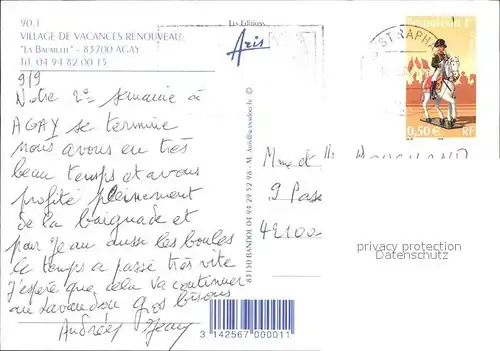 90.1
VILLAGE DE VACANCES RENOUVEAU
"LA BAUMETTE" - 83700 AGAY
Tél. 04 94 82 00 15
9/9
Notre 2e semaine à
AGAY se termine
nous avons eu très
beau temps et avons
profité pleinement
de la baignade et
pour Jean aussi les boules
le temps a passé très vite
J'espère que cela va continuer
au Lavandou gros bisous
Andrée Jean
Les Editions
Aris
83150 BANDOL 04 94 29 52 98 - M. Aris@wanadoo.fr
ST RAPHA
Napoléon 1er
0,50 € RF
Mme et M
9 Pass
42100
privacy protection
Datenschutz
3 142567 000011